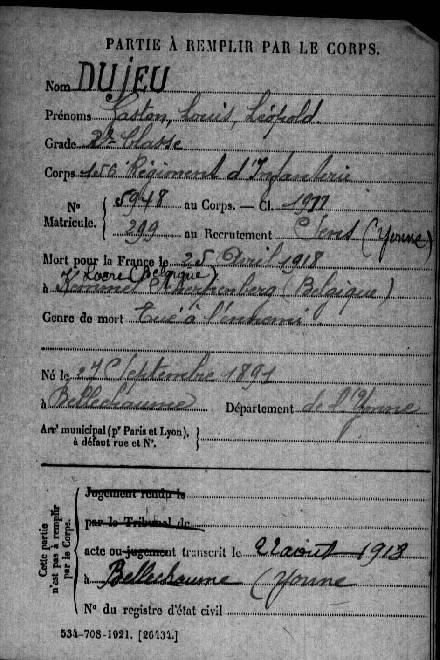 PARTIE À REMPLIR PAR LE CORPS.
Nom DUJEU
Prénoms Gaston, Louis, Léopold
Grade 2e Classe
Corps 156 Régiment d'Infanterie
N° Matricule. 5948 au Corps. — Cl. 1911
299 au Recrutement Sens (Yonne)
Mort pour la France le 25 Avril 1918
Locre (Belgique)
à Kemmel Scherpenberg (Belgique)
Genre de mort Tué à l'ennemi
Né le 27 Septembre 1891
à Bellechaume Département de l'Yonne
Arrt municipal (pr Paris et Lyon), à défaut rue et N°.
Cette partie n'est pas à remplir par le Corps.
Jugement rendu le
par le Tribunal de
acte ou jugement transcrit le 22 août 1918
à Bellechaume (Yonne
N° du registre d'état civil
534-708-1921. [26434.]